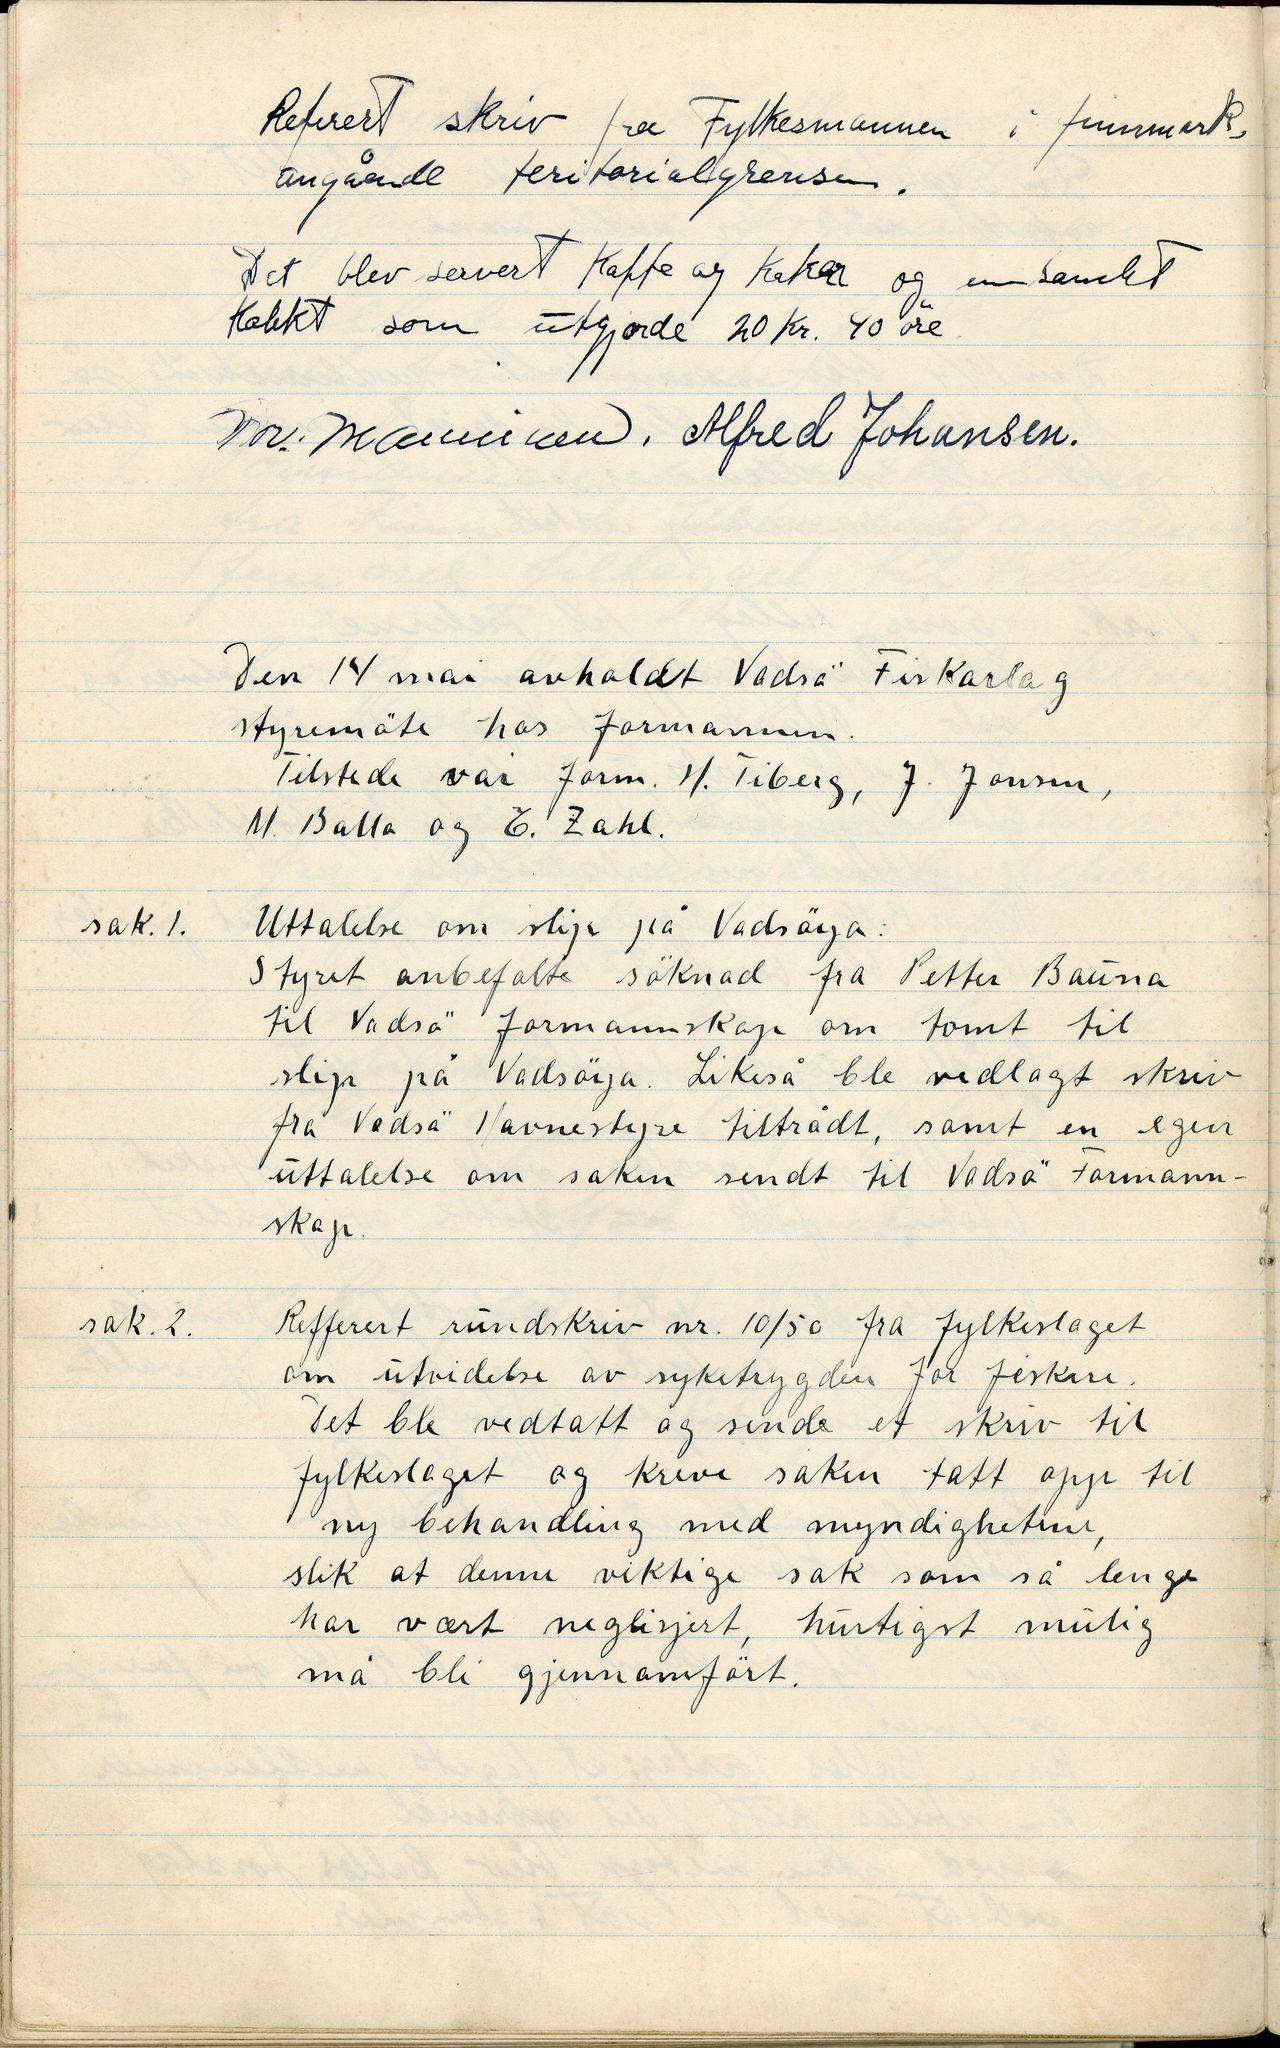 Referert skriv fra Fylkesmannen i finnmark,
angående teritorialgrensen.
Det blev servert Kaffe og Kaker og innsamlet
Kolekt som utgjorde 20 Kr. 40 öre
Alfred Johansen.
Den 14 mai avholdt Vadsö Fiskarlag
styremöte hos formannen.
Tilstede var form. H. Tiberg, J. Jonsen,
M. Balla og E. Zahl.
sak. 1. Uttalelse om slip på Vadsöya:
Styret anbefalte söknad fra Petter Bauna
til Vadsö formannskap om tomt til
slip på Vadsöya. Likeså ble vedlagt skriv
fra Vadsö Havnestyre tiltrådt, samt en egen
uttalelse om saken sendt til Vadsö Formann-
skap.
sak. 2. Refferert rundskriv nr. 10/50 fra fylkeslaget
om utvidelse av syketrygden for fiskere.
Det ble vedtatt og sende et skriv til
fylkeslaget og kreve saken tatt opp til
ny behandling med myndighetene,
slik at denne viktige sak som så lenge
har vært neglisjert, hurtigst mulig
må bli gjennomfört.